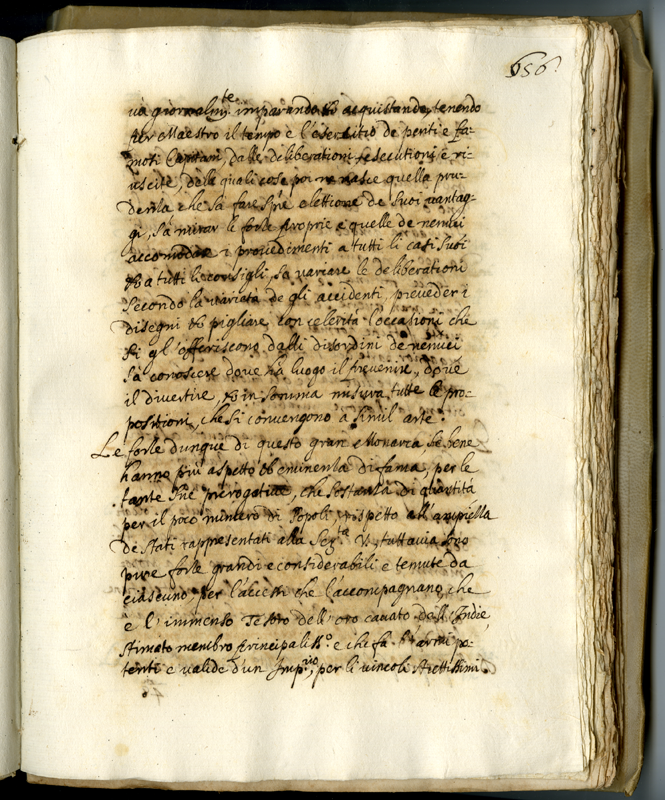 656
và giornalm.te imparando, et acquistando, tenendo
per Maestro il tempo e l'esercitio de periti e fa=
mosi Capitani, dalle deliberationi, essecutioni, e ri=
uscite, dele quali cose poi ne nasce quella pru=
denza che sà fare
elettione de suoi vantag=
gi, sà mirar le forze proprie e quelle de nemici
accomodare i provedimenti a tutti li casi suoi
et a tutti li consigli, sà variare le deliberationi
secondo la varietà de gli accidenti, preveder i
disegni et pigliare con celerità l'occasioni che
se gl'offeriscono dalli disordini de nemici
sà conoscere dove hà luogo il prevenire, dove
il divertire, et in somma misura tutte le pro=
positioni, che si convengono à simil arte.
Le forze dunque di questo gran Monarca se bene
hanno più aspetto et eminenza di fama, per le
tante sue prerogative, che sostanza di quantità
per il poco numero di Popoli, rispetto all'ampiezza
de Stati rappresentati alla Ser.tà V. tuttavia sono
pure forze grandi e considerabili e temute da
ciascuno, per l'accessi che l'accompagnano, che
è l'immenso Tesoro dell'oro cavato dall'Indie,
stimato membro principaliss.o e che fà l'armi po=
tenti e valide d'un Imp.rio, per li vincoli strettissimi